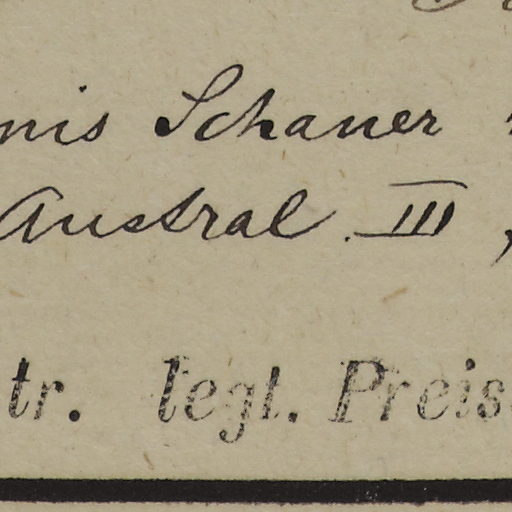 nis Schauer
Austral. III,
tr. legt. Preis